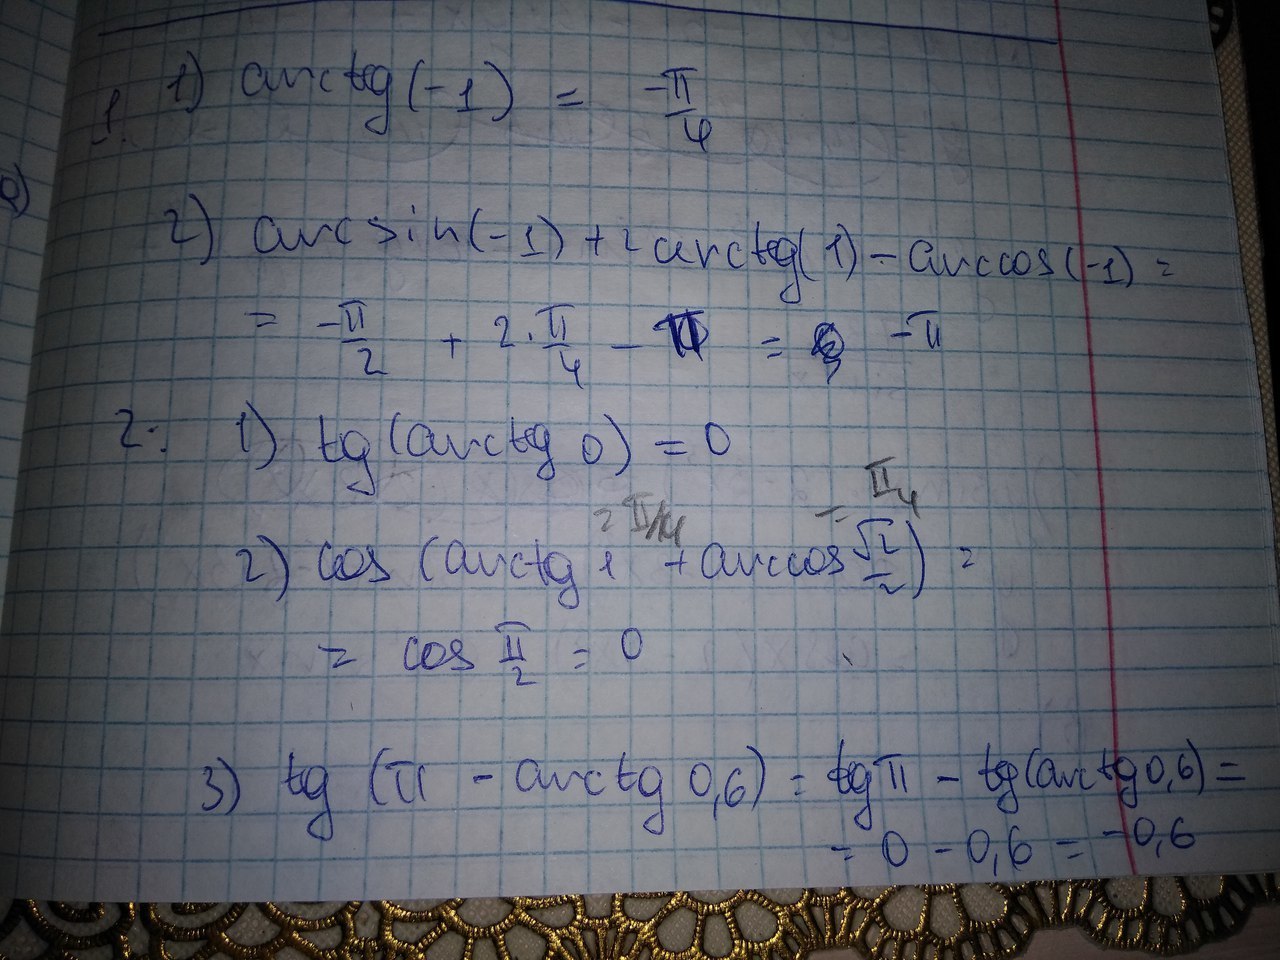 1. 1) arctg(-1) = -π/4
2) arcsin(-1) + 2arctg(1) - arccos(-1) =
= -π/2 + 2·π/4 - π = -π
2. 1) tg(arctg 0) = 0
= π/4 = π/4
2) cos(arctg 1 + arccos √2/2) =
= cos π/2 = 0
3) tg(π - arctg 0,6) = tg π - tg(arctg 0,6) =
= 0 - 0,6 = -0,6